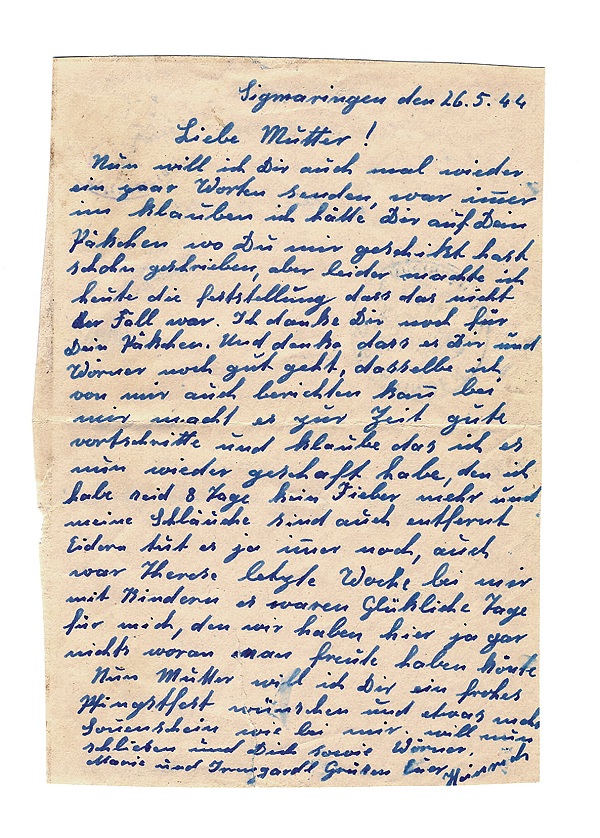 Sigmaringen den 26.5.44
Liebe Mutter!
Nun will ich Dir auch mal wieder
ein paar Worten senden, war im̅er
im klauben ich hätte Dir auf Dein
Päkchen wo Du mir geschikt hast
schohn geschrieben, aber leider machte ich
heute die feststellung dass das nicht
der Fall war. Ich danke Dir noch für
Dein Päkchen. Und danke dass es Dir und
Wörner noch gut geht, dasselbe ich
von mir auch berichten kan̅ bei
mir macht es zur Zeit gute
vortschritte und klaube das ich es
nun wieder geschaft habe, den ich
habe seid 8 Tage kein Fieber mehr und
meine Schläuche sind auch entfernt
Eidern tut es ja im̅er noch, auch
war Therese letzte Woche bei mir
mit Kindern es waren Glükliche Tage
für mich, den wir haben hier ja gar
nichts woran man freute haben kön̅te
Nun Mutter will ich Dir ein frohes
Pfingstfest wünschen und etwas mehr
Son̅enschein wie bei mir. will nun
schliesen und Dich sowie Wörner.
Marie und Irmgardl Grüsen Euer Heinrich